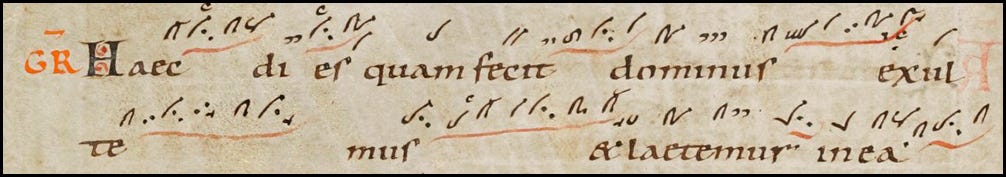 GR Haec di es quam fecit dominus exul
te mus & laetemur in ea